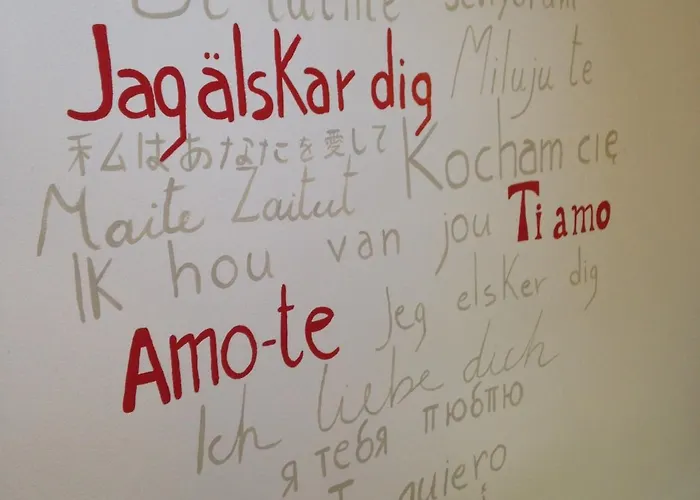 Jag älskar dig
Miluju te
私はあなたを愛して
Kocham cię
Maite Zaitut
IK hou van jou
Ti amo
Jeg elsker dig
Amo-te
Ich liebe dich
я тебя люблю
quiero